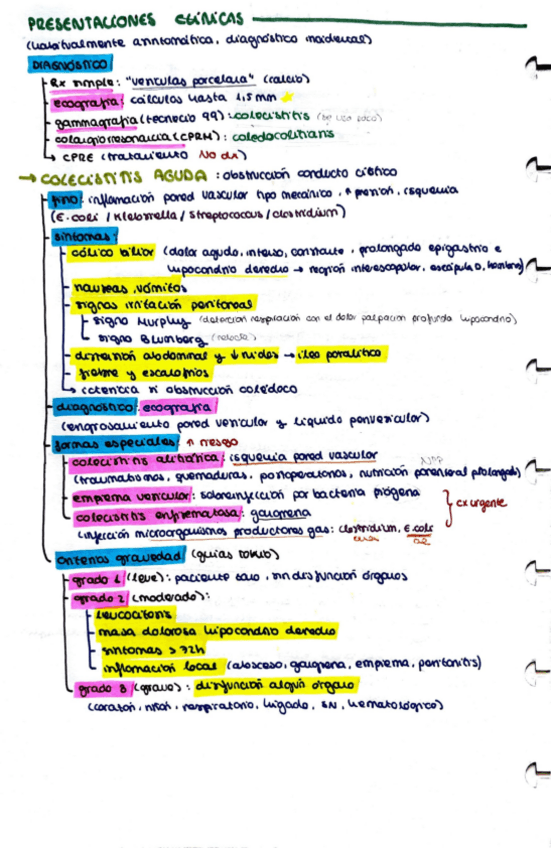 PRESENTACIONES CLÍNICAS
(habitualmente asintomática, diagnóstico incidental)
DIAGNÓSTICO
Rx simple: "vesículas porcelana" (calcio)
ecografía: cálculos hasta 1,5 mm
gammagrafía (tecnecio 99): colecistitis (se usa poco)
colangioresonancia (CPRM): coledocolitiasis
CPRE (tratamiento NO dx)
→ COLECISTITIS AGUDA: obstrucción conducto cístico
fisio: inflamación pared vascular tipo mecánico, ↑ presión, isquemia
(E. coli / Klebsiella / Streptococcus / clostridium)
síntomas:
cólico biliar (dolor agudo, intenso, constante, prolongado epigastrio e
hipocondrio derecho → región interescapular, escápula, hombro)
nauseas, vómitos
signos irritación peritoneal
signo Murphy (detención respiración con el dolor palpación profunda hipocondrio)
signo Blumberg (rebote)
distensión abdominal y ↓ ruidos → íleo paralítico
fiebre y escalofríos
ictericia si obstrucción colédoco
diagnóstico: ecografía
(engrosamiento pared vesicular y líquido perivesicular)
formas especiales: ↑ riesgo
colecistitis alitiásica: isquemia pared vascular
NPP
(traumatismos, quemaduras, postoperatorios, nutrición parenteral prolongada)
empiema vesicular: sobreinfección por bacteria piógena
colecistitis enfisematosa: gangrena
cx urgente
(infección microorganismos productores gas: clostridium, E. coli)
criterios gravedad (guías tokio)
grado 1 (leve): paciente sano, sin disfunción órganos
grado 2 (moderado):
leucocitosis
masa dolorosa hipocondrio derecho
síntomas > 72h
inflamación local (absceso, gangrena, empiema, peritonitis)
grado 3 (grave): disfunción algún órgano
(corazón, riñón, respiratorio, hígado, SN, hematológico)